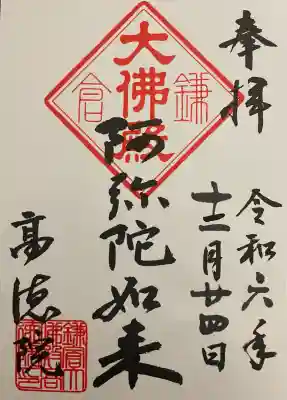 奉拝
令和六年
十二月廿四日
大佛殿
鎌倉
阿弥陀如来
高徳院